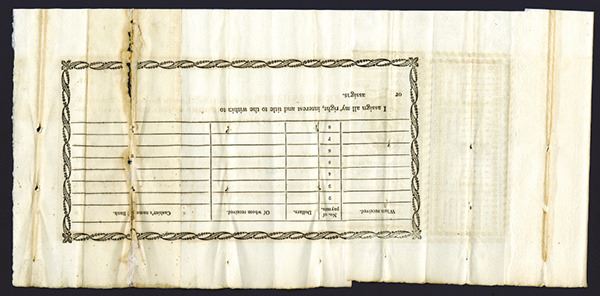 When received. No. of paymts. Dollars. Of whom received. Cashier's name Bank.
2
3
4
5
6
7
8
I assign all my right, interest and title to the within to
or assigns.